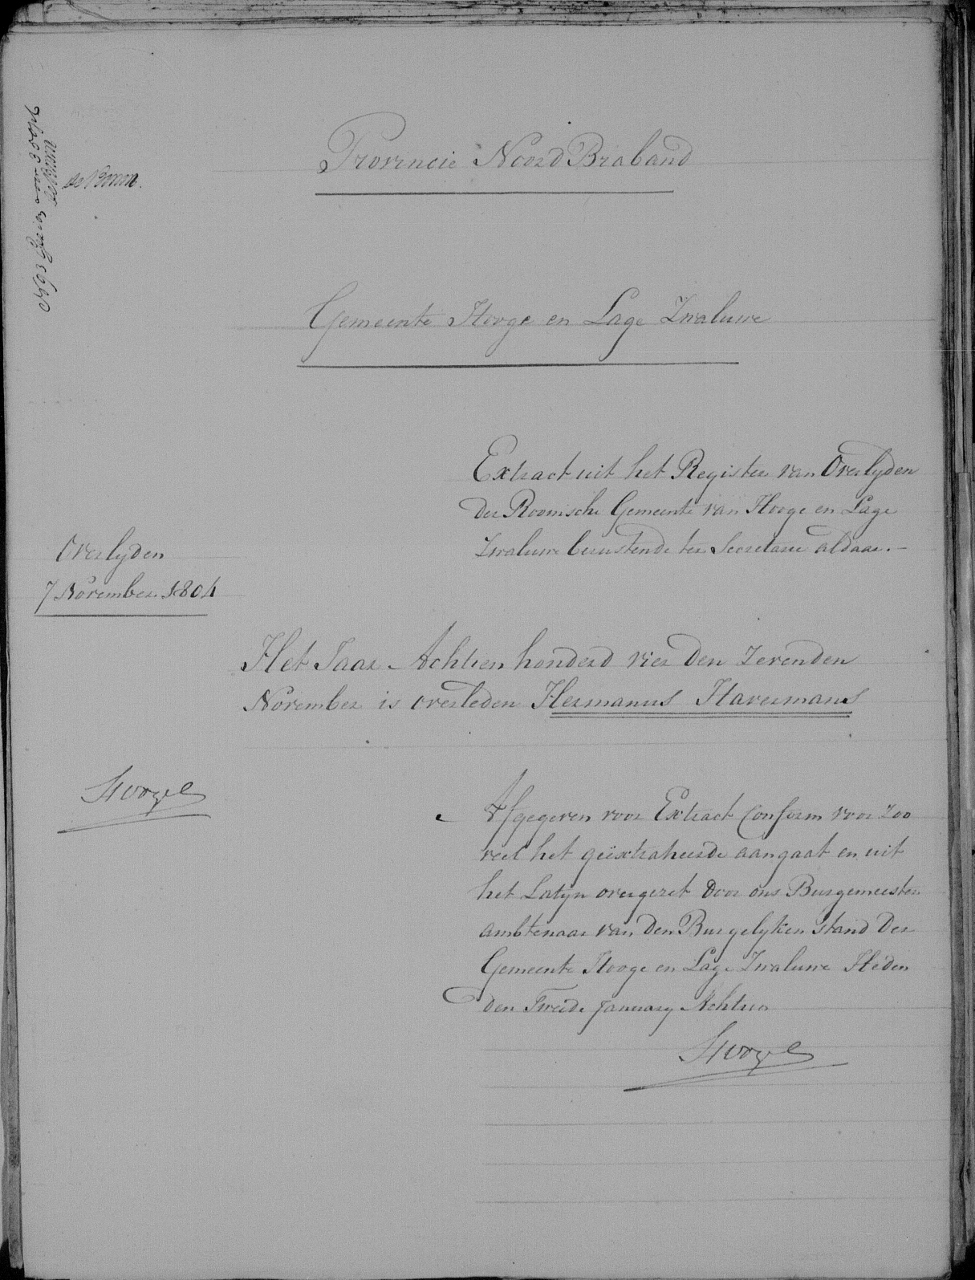 de Bruin.
Provincie Noord Braband
Gemeente Hooge en Lage Zwaluwe
Extract uit het Register van Overlyden
der Roomsche Gemeente van Hooge en Lage
Zwaluwe berustende ter Secretarie aldaar.—
Overlyden
7 November 1804
Het Jaar Achtien honderd vier den zevenden
November is overleden Hermanus Havermans
Afgegeven voor Extract Conform voor zoo
veel het geëxtraheerde aangaat en uit
het Latyn overgezet door ons Burgemeester
ambtenaar van den Burgelyken stand der
Gemeente Hooge en Lage Zwaluwe Heden
den Tweede January Achtien